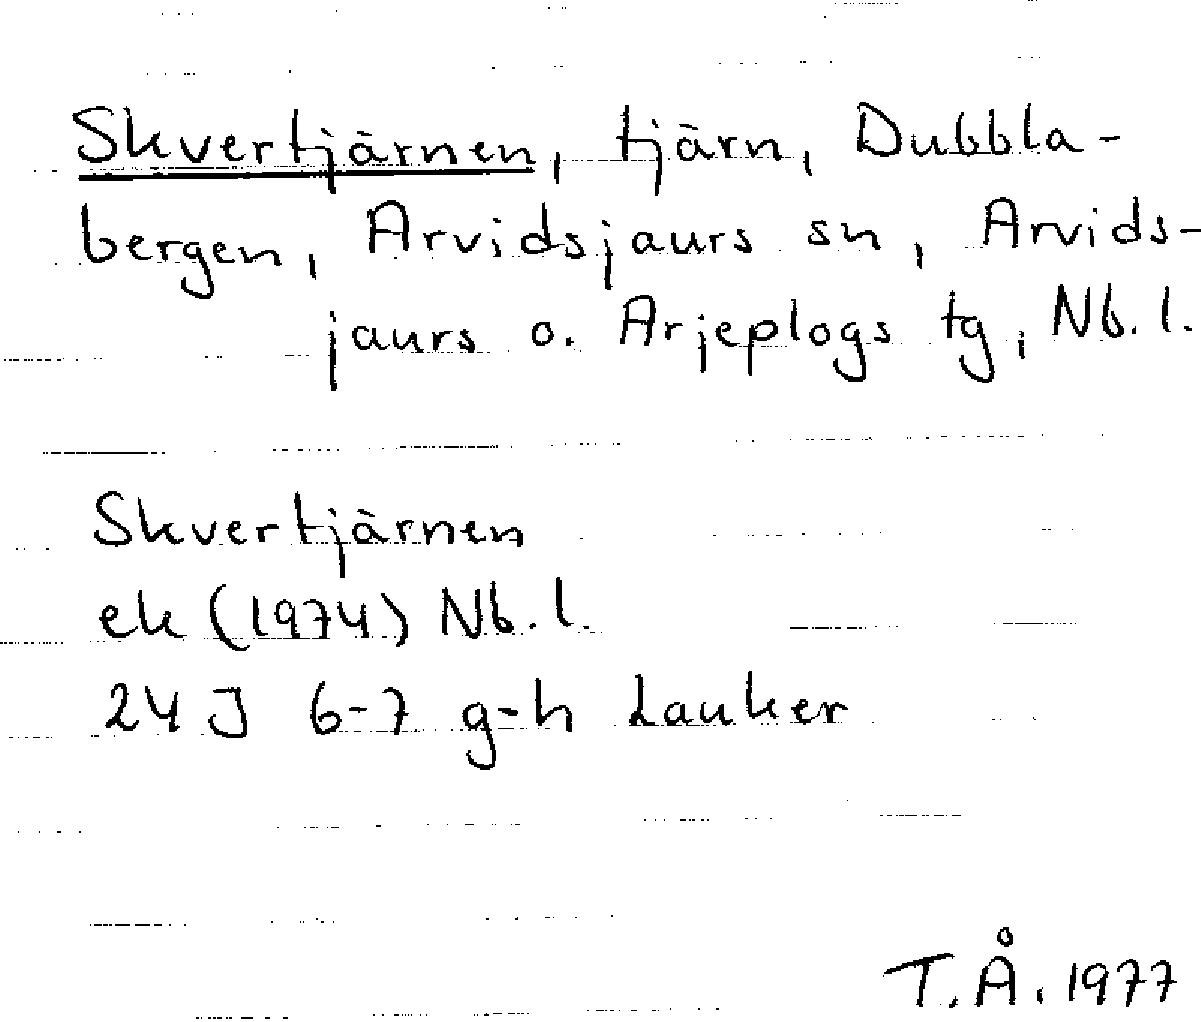 Skvertjärnen, tjärn, Dubbla-
bergen, Arvidsjaurs sn, Arvids-
jaurs o. Arjeplogs tg, Nb. l.
Skvertjärnen
ek (1974) Nb. l.
24 J 6-7 g-h Lauker
T.Å. 1977